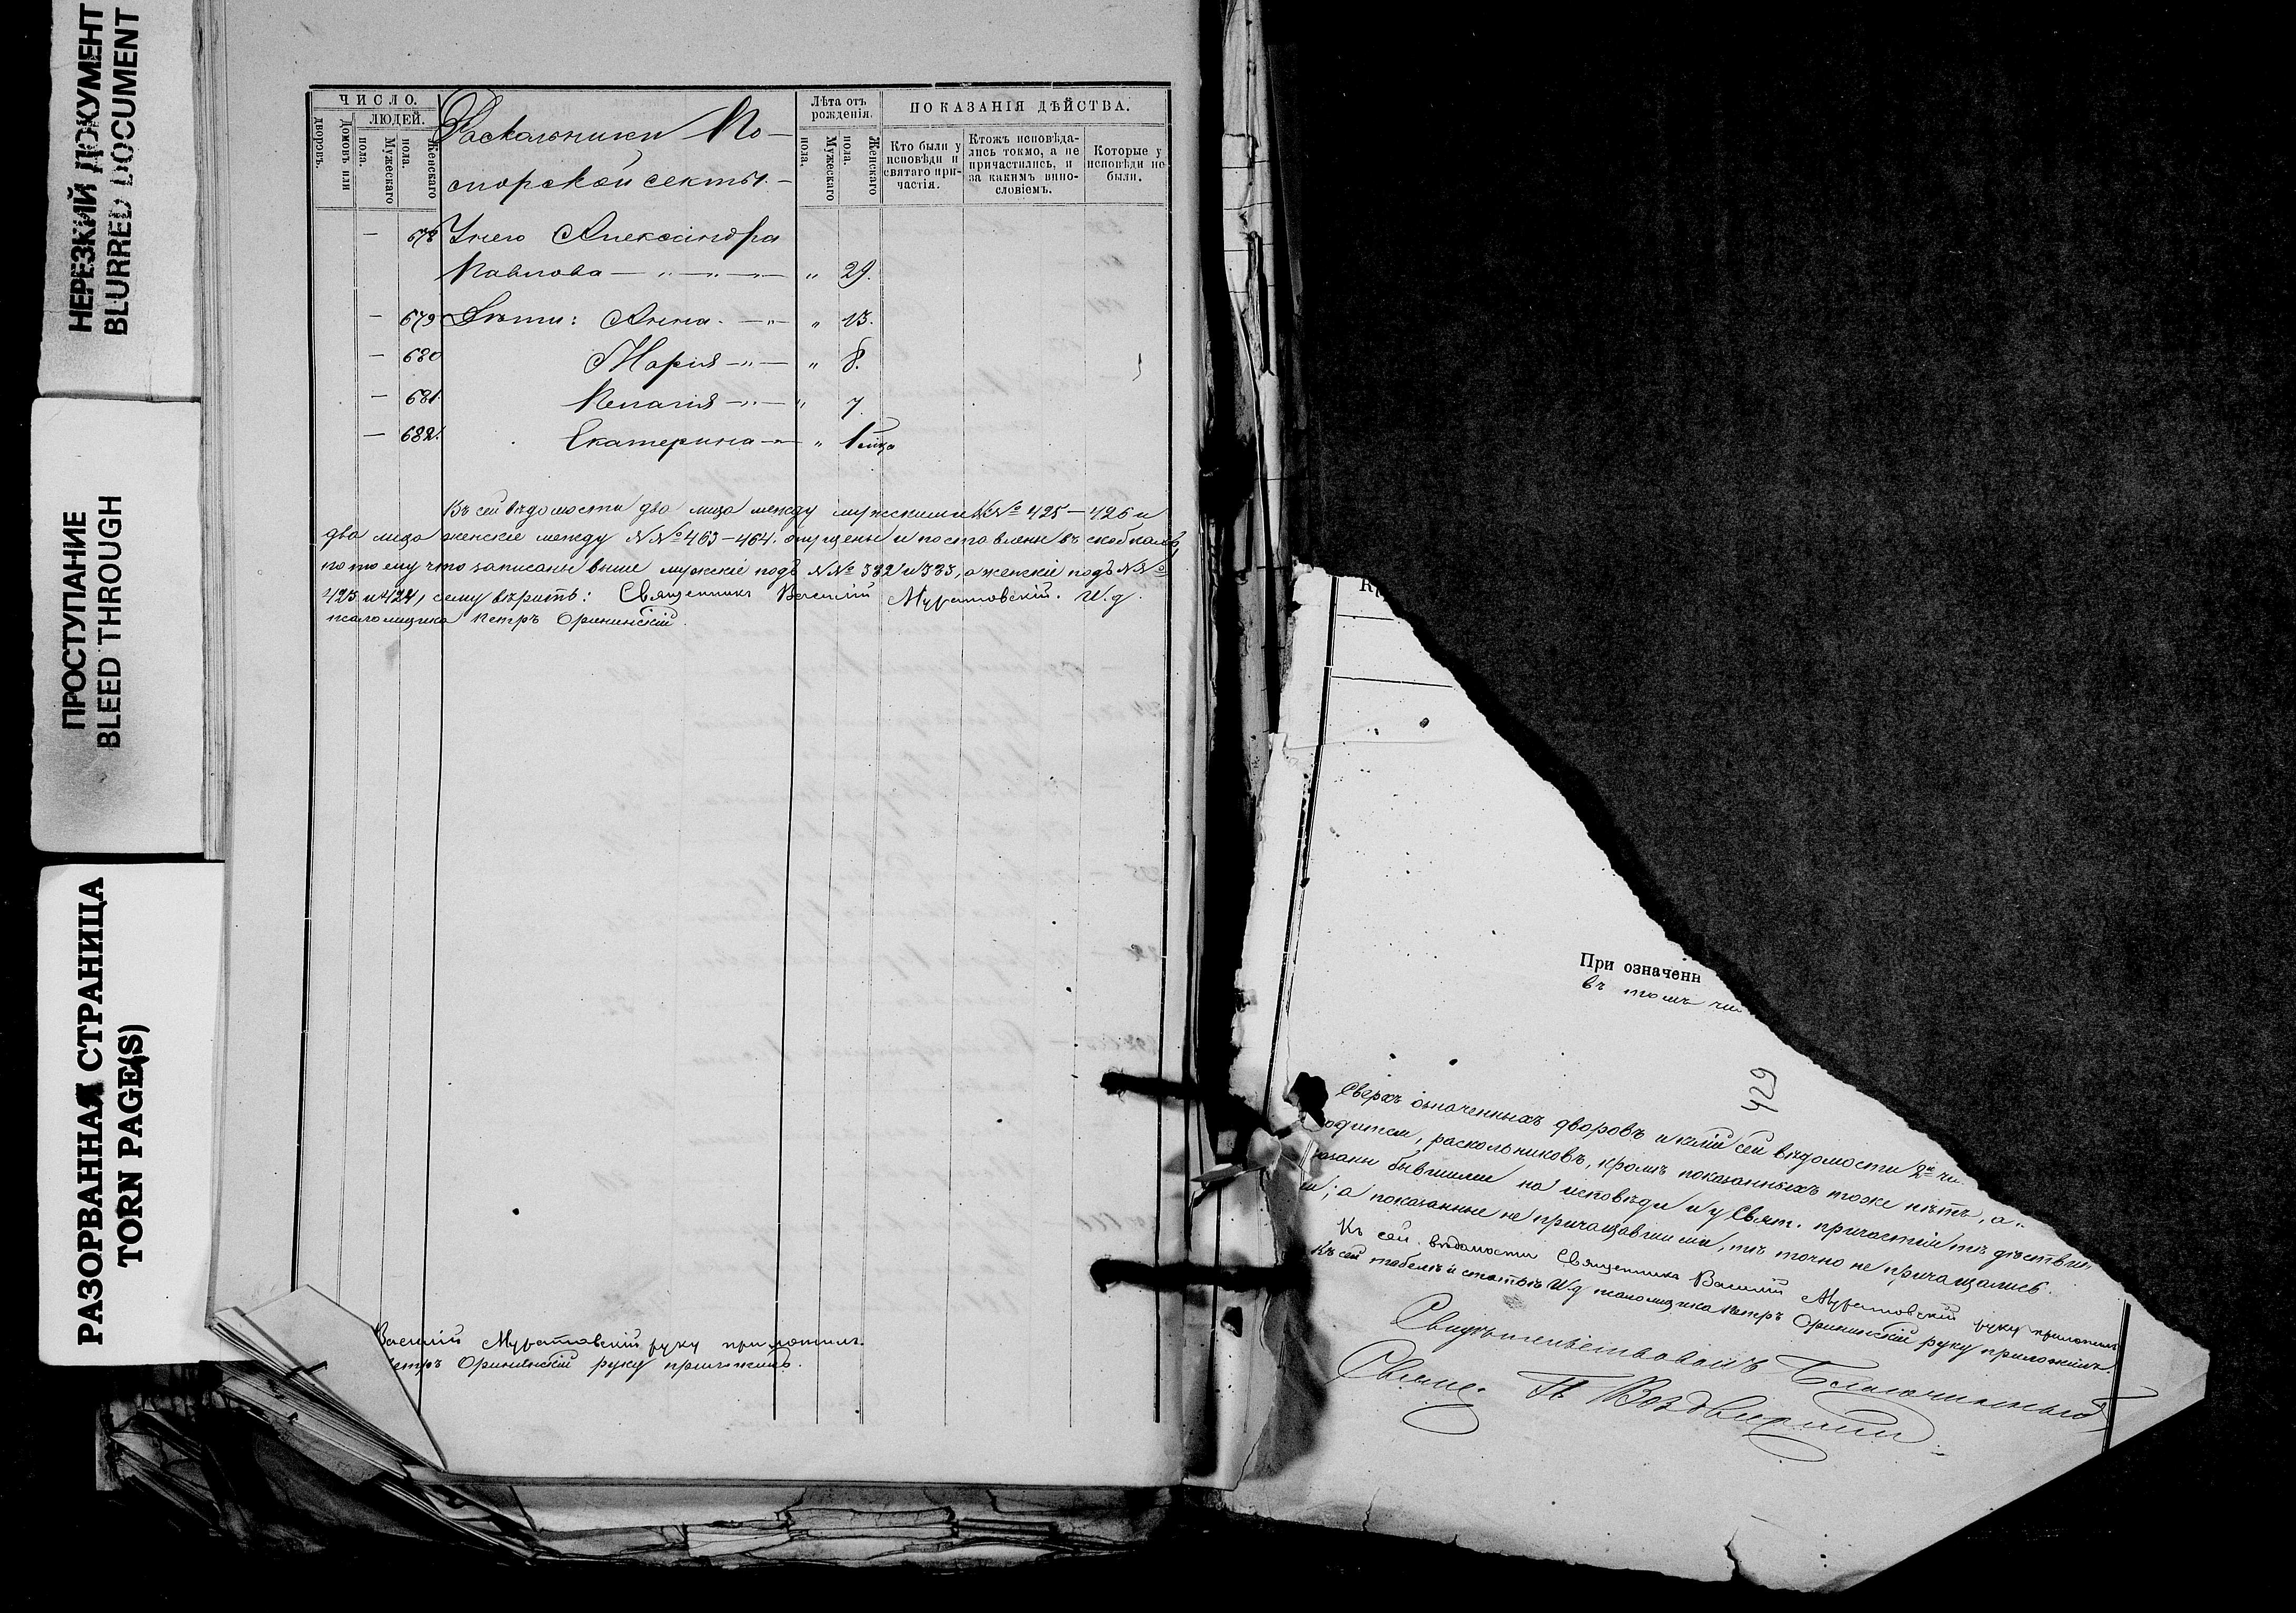 НЕРЕЗКИЙ ДОКУМЕНТ
BLURRED DOCUMENT
ПРОСТУПАНИЕ
BLEED THROUGH
РАЗОРВАННАЯ СТРАНИЦА
TORN PAGE(S)
ЧИСЛО.
ЛЮДЕЙ.
Домовъ или дворовъ.
Мужескаго пола.
Женскаго пола.
Раскольники По-
морской секты. —
Лѣта отъ рожденія.
Мужескаго пола.
Женскаго пола.
ПОКАЗАНІЯ ДѢЙСТВА.
Кто были у исповѣди и святаго причастія.
Ктожъ исповѣда-лись токмо, а не причастились, и за какимъ вино-словіемъ.
Которые у исповѣди не были.
— 678 Александра
Павлова — „ — „ — „ — „ 29.
— 679 Дѣти: Анна. — „ — „ 13.
— 680 Марія — „ — „ 8.
— 681 Пелагія — „ — „ 7.
— 682. Екатерина — „ — „ 1
Къ сей вѣдомости два лица между мужескими №№ 425 — 426 и
два лица женскіе между №№ 463 — 464. опущены и поставлены въ скобкахъ,
потому что записаны выше мужскіе подъ №№ 382 и 383, а женскіе подъ №№
423 и 424, сему вѣрить: Священникъ Василій Муратовскій. И. д.
псаломщика Петръ Орининскій.
Василій Муратовскій руку приложилъ.
Петръ Орининскій руку приложилъ.
При означенн
въ томъ чи
429
Сверхъ означенныхъ дворовъ и сей вѣдомости
раскольниковъ, кромѣ показанныхъ тоже нѣтъ, а
бывшими на исповѣди и у Свят. причастія тѣ дѣйстви
; а показанные не причащавшимися, тѣ точно не причащались.
Къ сей вѣдомости Священникъ Василій Муратовскій руку приложилъ
Къ сей и И. д. псаломщика Петръ Орининскій руку приложилъ.
Свидѣтельствовалъ Благочинный
Священ. П Воздвиженскій